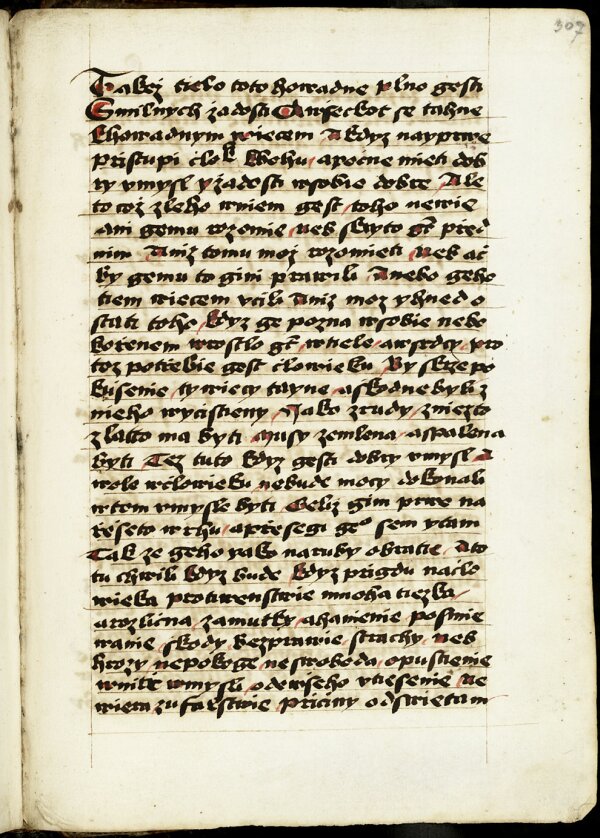 307
Takez tielo toto howadne plno gesti
Smilnych zadosti A wseckot se tahne
khowadnym wiecem A kdyz nayprwe
pristupi clok kbohu apocne mieti dob
ry vmysl yzadosti wsobie dobre Ale
to coz zleho wniem gest toho newie
ani gemu rozomie neb skryto gt pred
nim Aniz tomu moz rozomieti Neb ac
by gemu to gini prawili Anebo geho
tiem wiecem vcili Aniz moz yhned o
stati toho kdyz ge pozna wsobie nebo
korenem wrostlo gt wtiele awsrdcy pro
toz potrebie gest clowieku By skrze po
kusenie ty wiecy tayne askodne byli z
nieho wycisstieny Jako zrudy zniezto
zlatto ma byti musy zemlena aspalena
byti Tez tuto kdyz gesti dobry vmysl A
wole wclowieku nebude mocy dokonali
wtom vmysle byti Geliz gim prwe na
reseto wrhu apresegi gego sem ytam
Tak ze geho yako naruby obratie Ato
tu chwili kdyz bude kdyz prigdu naclo
wieka protiwenstwie mnoha tiezka
arozlicna zamutky ahanienie posmie
wanie skody bezprawie strachy neb
hrozy nepokoge neswoboda opustienie
wnitr wmysli odewseho vtiesenie Ne
wiera zufalstwie priciny odswietam